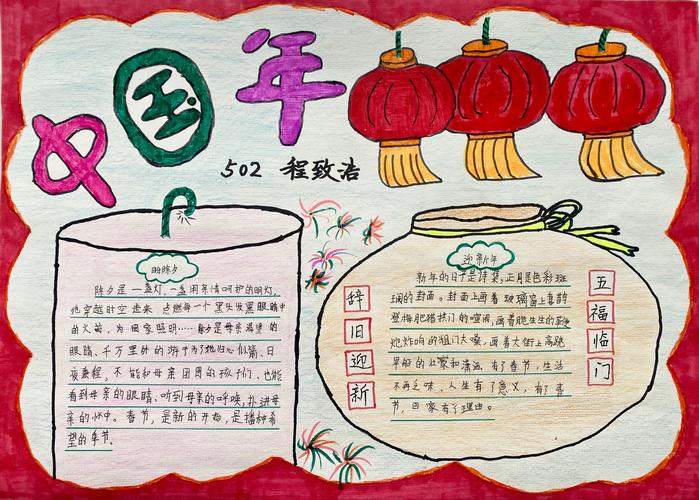 中国年
502 程致浩
盼除夕
除夕是一盏灯,一盏用亲情呵护的明灯,
她穿越时空走来,点燃每一个黑头发黑眼睛中
的火苗,为回家照明……除夕是母亲渴望的
眼睛,千万里外的游子为了她归心似箭、日
夜兼程,不能和母亲团圆的孩子们,也能
看到母亲的眼睛、听到母亲的呼唤,扑进母
亲的怀中。春节,是新的开始,是播种希
望的季节。
辞旧迎新
迎新年
新年的日子是诗集,正月是色彩斑
斓的封面。封面上画着玻璃窗上喜鹊
登梅肥猪拱门的喧闹,画着脆生生的
炮炸响的祖门大嗓,画着大街上高跷
旱船的壮家和潇洒。有了春节,生活
不再乏味,人生有了意义,有了春
节,回家有了理由。
五福临门